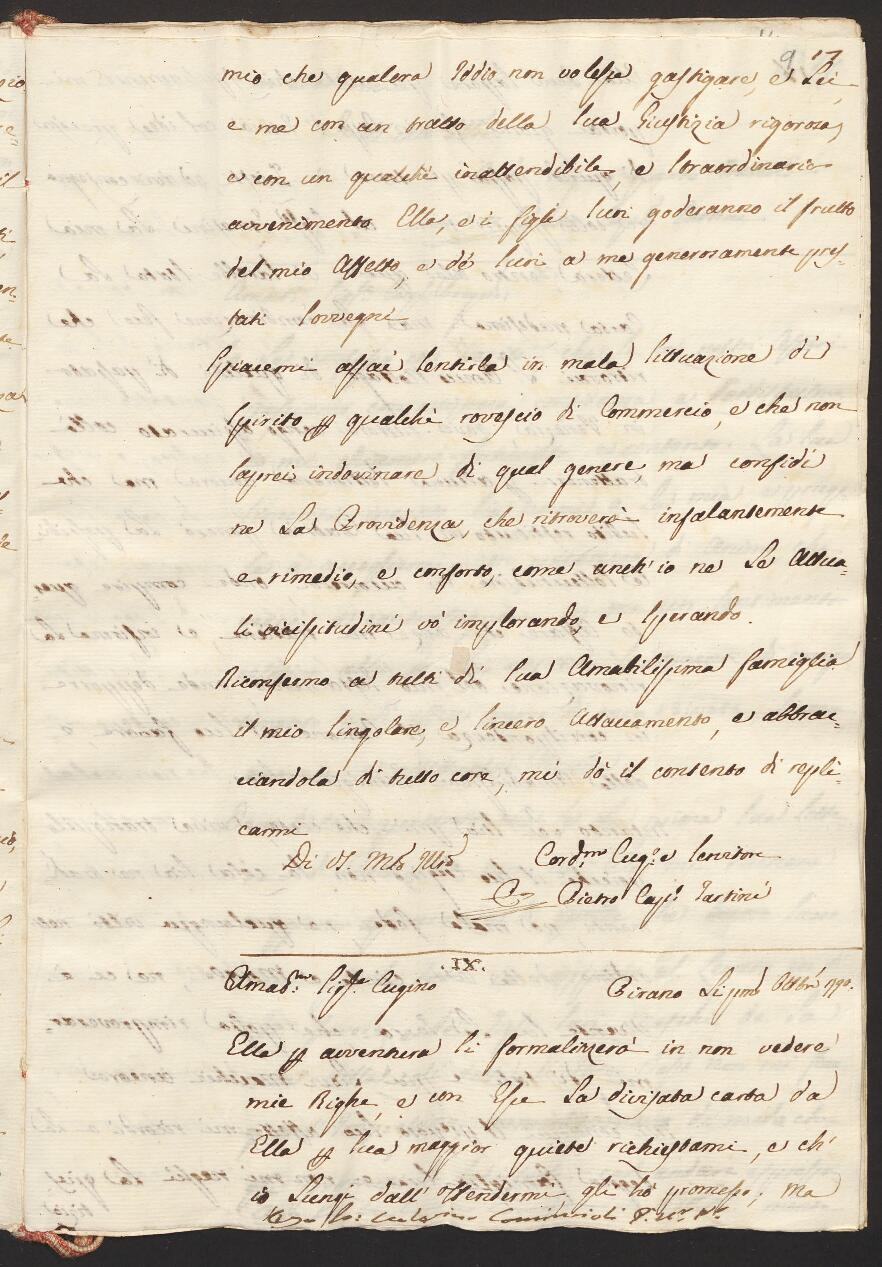 9 17
mio che qualora Iddio non volesse gastigare, e Lei,
e me con un tratto della sua Giustizia rigorosa,
e con un qualche inattendibile, e straordinario
avvenimento Ella, e i figli suoi goderanno il frutto
del mio Affetto, e de suoi a me generosamente pres-
tati sovvegni
Spiacemi assai sentirla in mala situazione di
spirito per qualche rovescio di Commercio, e che non
saprei indovinare di qual genere, ma confidi
ne La Providenza, che ritroverà infalantemente
e rimedio, e conforto, come anch'io ne Le Attua-
li vicissitudini vò implorando, e sperando.
Riconfermo a tutti di sua Amabilissima famiglia
il mio singolare, e sincero Attaccamento, e abbrac-
ciandola di tutto core, mi dò il contento di repli-
carmi
Di V. Mto Illre
Cordmo Cugo e servitore
Pietro Capo Tartini
.IX.
Amadmo Sigre Cugino Pirano Li pmo Ottbre 1790.
Ella per avventura si formalizzerà in non vedere
mie Righe, e con Esse La divisata carta da
Ella per sua maggior quiete richiestami, e ch'
io Lungi dall'offendermi gli hò promesso; ma